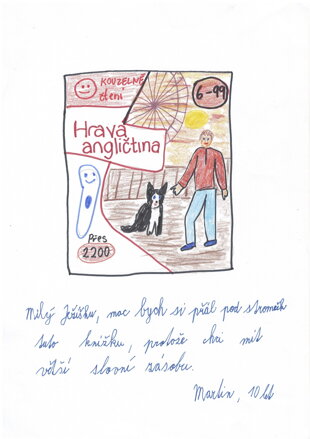 KOUZELNÉ
čtení
6-99
Hravá
angličtina
Přes
2200
Milý Ježíšku, moc bych si přál pod stromeček
tuto knížku, protože chci mít
větší slovní zásobu.
Martin, 10 let